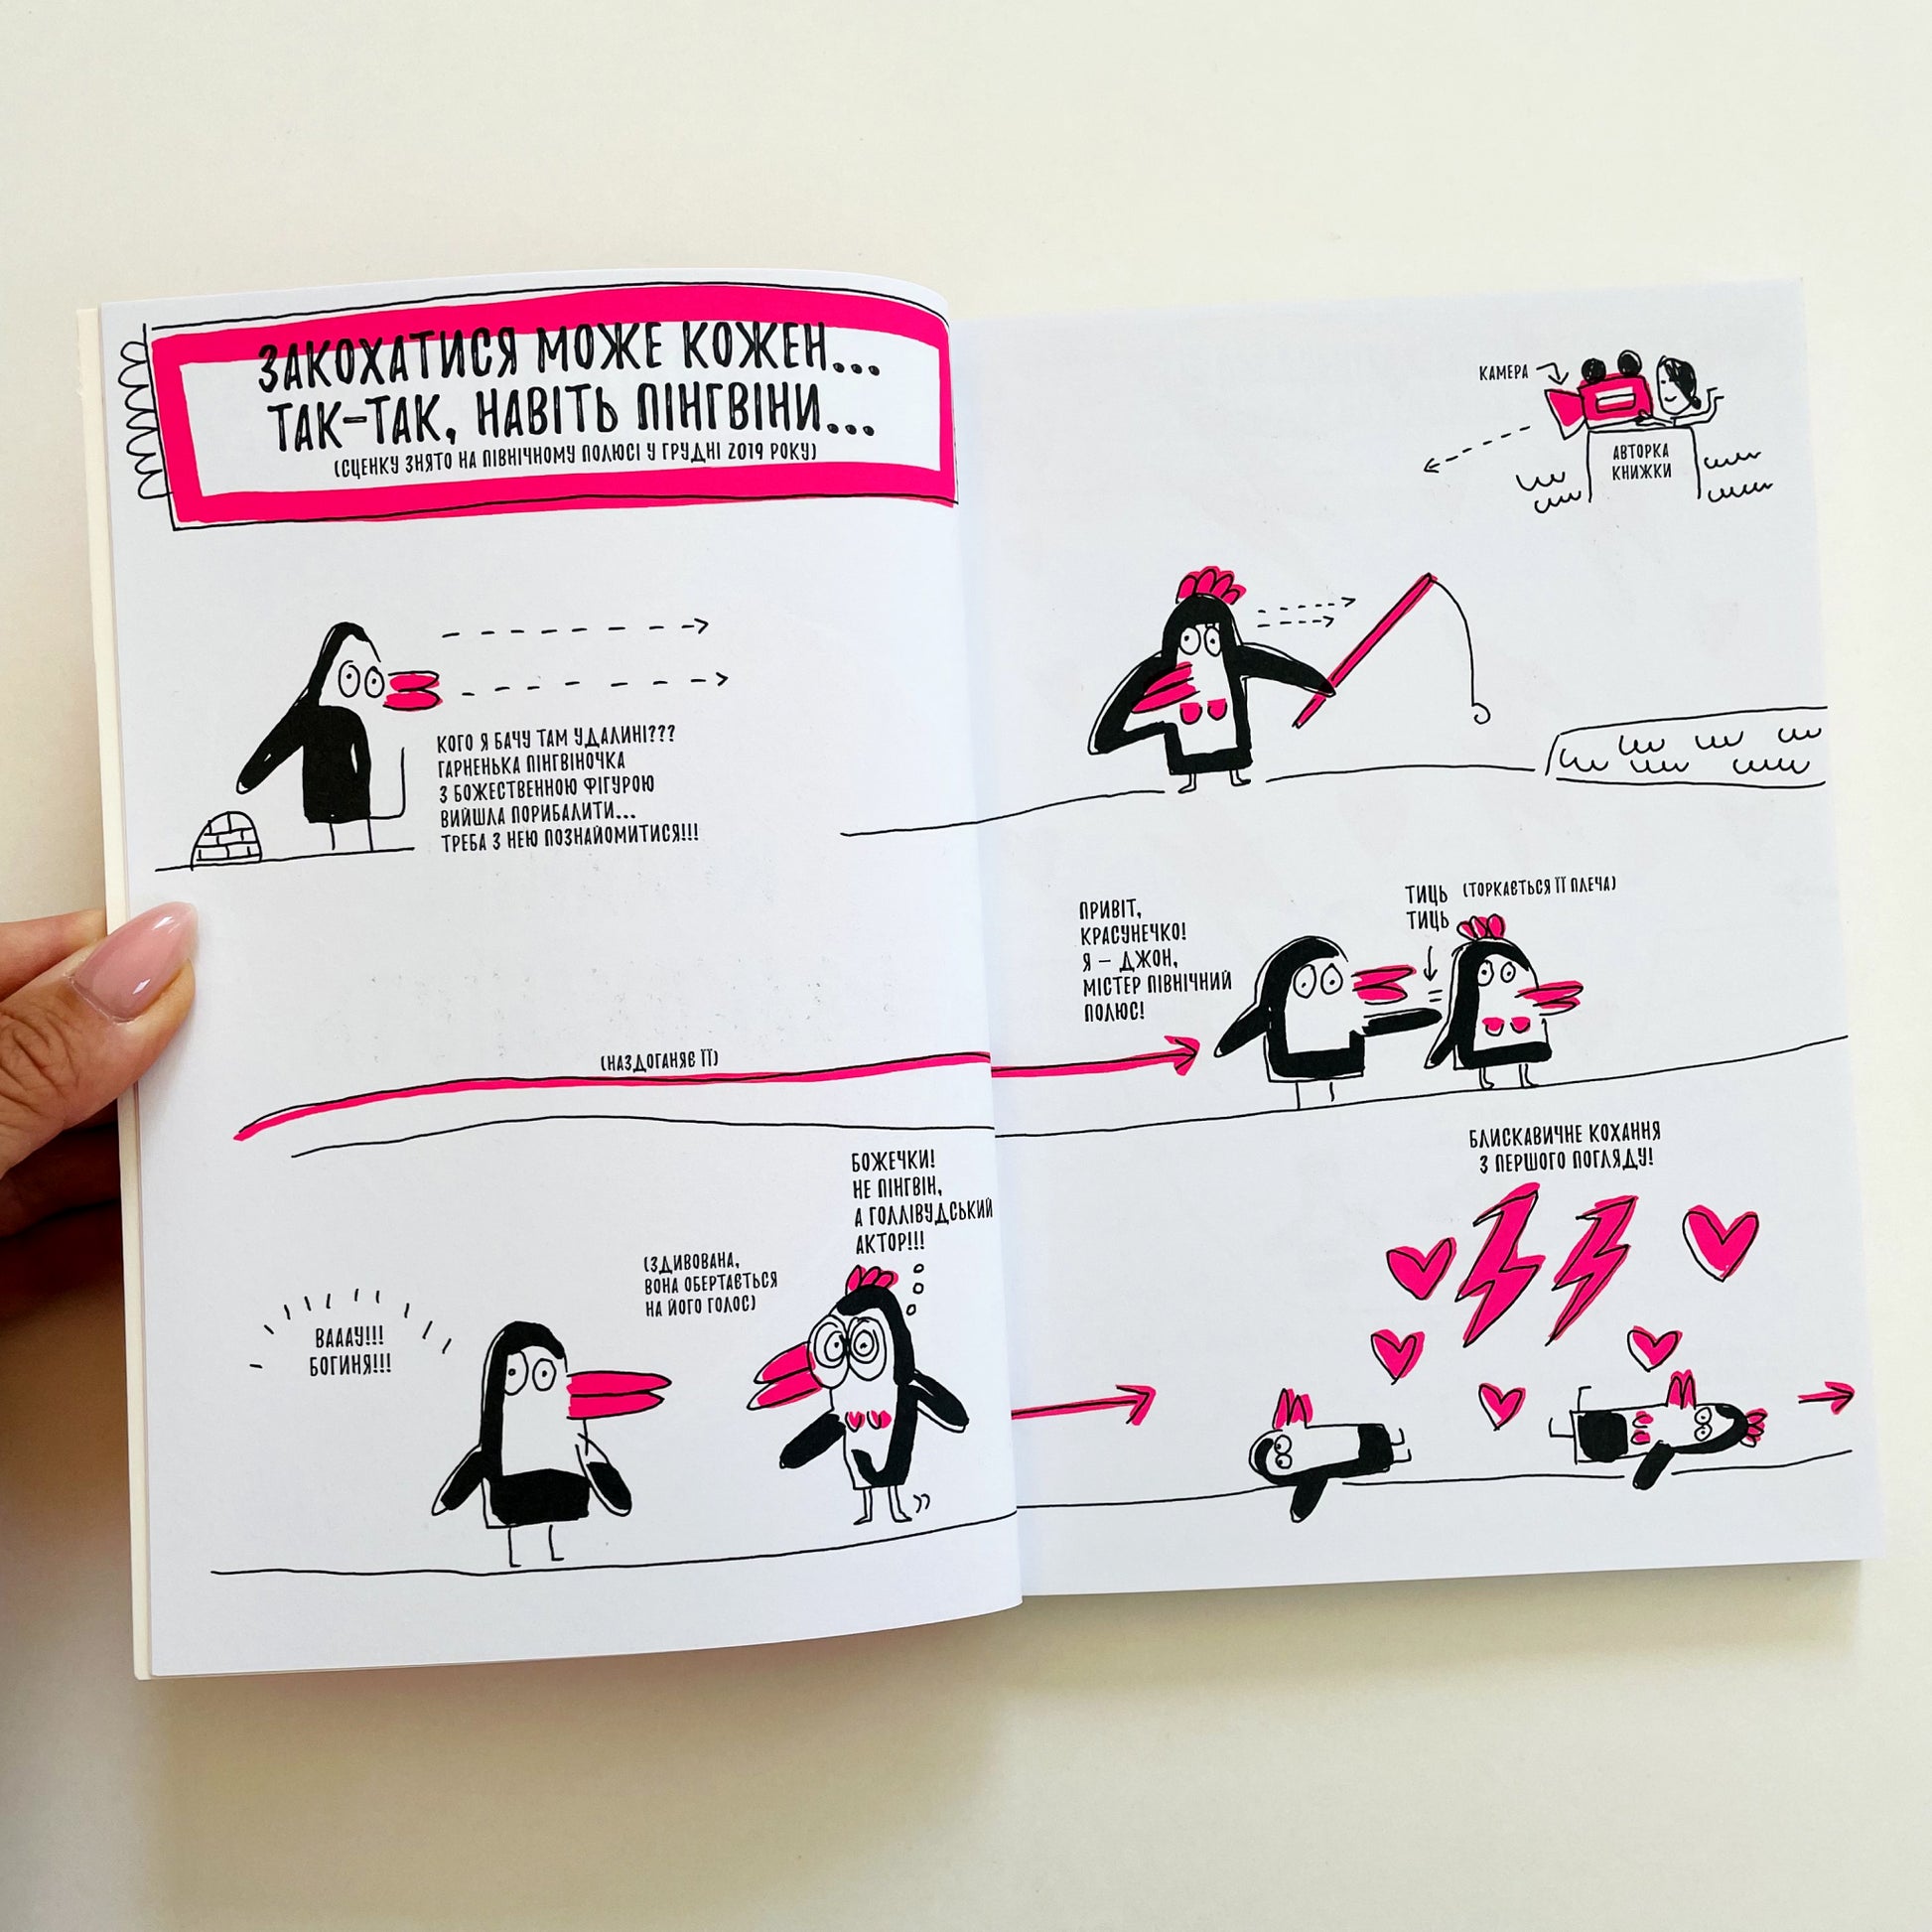 ЗАКОХАТИСЯ МОЖЕ КОЖЕН...
ТАК-ТАК, НАВІТЬ ПІНГВІНИ...
(СЦЕНКУ ЗНЯТО НА ПІВНІЧНОМУ ПОЛЮСІ У ГРУДНІ 2019 РОКУ)
КАМЕРА
АВТОРКА
КНИЖКИ
КОГО Я БАЧУ ТАМ УДАЛИНІ???
ГАРНЕНЬКА ПІНГВІНОЧКА
З БОЖЕСТВЕННОЮ ФІГУРОЮ
ВИЙШЛА ПОРИБАЛИТИ...
ТРЕБА З НЕЮ ПОЗНАЙОМИТИСЯ!!!
(НАЗДОГАНЯЄ ЇЇ)
ПРИВІТ,
КРАСУНЕЧКО!
Я – ДЖОН,
МІСТЕР ПІВНІЧНИЙ
ПОЛЮС!
ТИЦЬ (ТОРКАЄТЬСЯ ЇЇ ПЛЕЧА)
ТИЦЬ
ВАААУ!!!
БОГИНЯ!!!
(ЗДИВОВАНА,
ВОНА ОБЕРТАЄТЬСЯ
НА ЙОГО ГОЛОС)
БОЖЕЧКИ!
НЕ ПІНГВІН,
А ГОЛЛІВУДСЬКИЙ
АКТОР!!!
БЛИСКАВИЧНЕ КОХАННЯ
З ПЕРШОГО ПОГЛЯДУ!